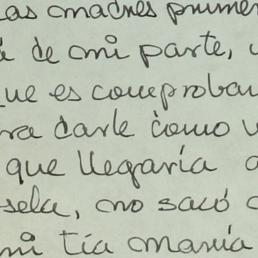 las madres primer
de mi parte,
ue es comprobar
ra darle como u
que llegaría a
sela, no sacó
mi tía maría